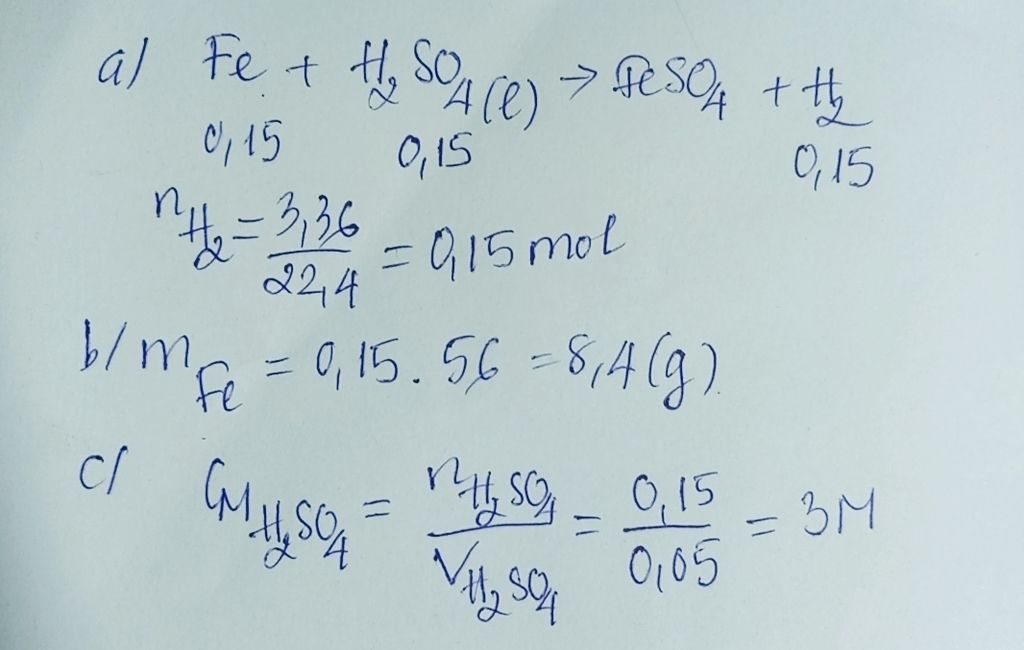 a/ Fe + H₂SO₄(l) → FeSO₄ + H₂
0,15 0,15 0,15
nH₂ = 3,36/22,4 = 0,15 mol
b/ mFe = 0,15 . 56 = 8,4 (g)
c/ CM H₂SO₄ = nH₂SO₄/VH₂SO₄ = 0,15/0,05 = 3M